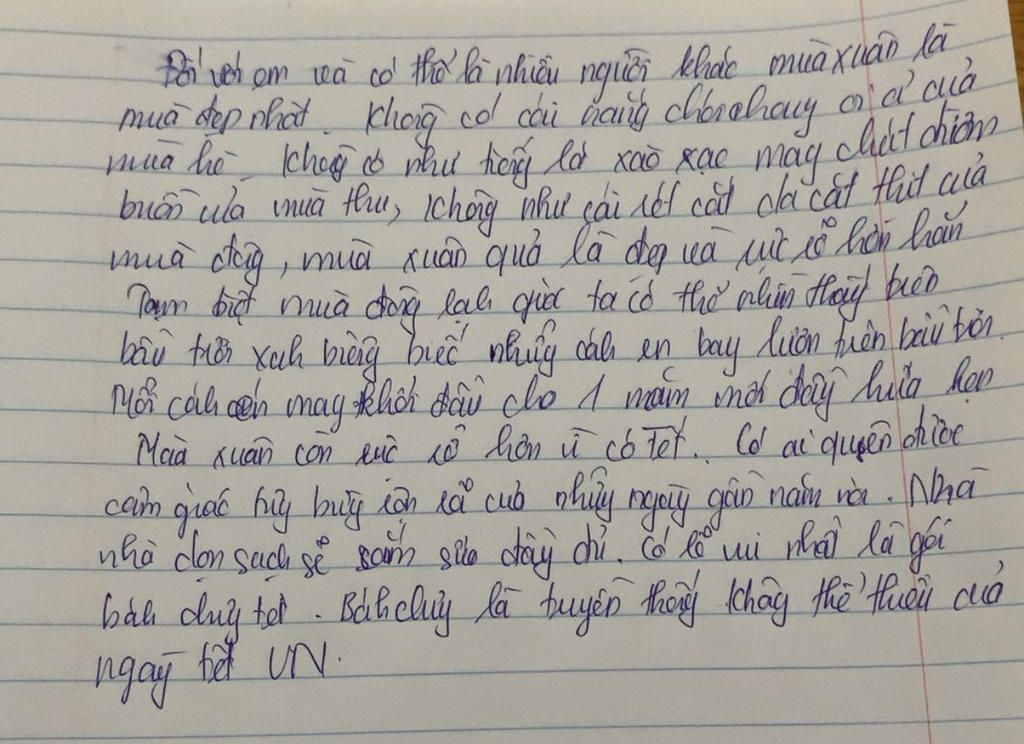 Đối với em và có thể là nhiều người khác mùa xuân là
mùa đẹp nhất. Không có cái nắng chói chang oi ả của
mùa hè. Không có như tiếng lá xào xạc mang chút đượm
buồn của mùa thu, không như cái rét cắt da cắt thịt của
mùa đông, mùa xuân quả là đẹp và rực rỡ hơn hẳn
Tạm biệt mùa đông lạnh giá ta có thể nhìn thấy trên
bầu trời xanh biêng biếc những cánh én bay lượn trên bầu trời.
Mỗi cánh én mang khởi đầu cho 1 năm mới đầy hứa hẹn
Mùa xuân còn rực rỡ hơn vì có Tết. Có ai quên được
cảm giác từng bừng rộn rã của những ngày gần năm mới. Nhà
nhà dọn sạch sẽ sắm sửa đầy đủ. Có lẽ vui nhất là gói
bánh chưng tết. Bánh chưng là truyền thống không thể thiếu của
ngày tết VN.